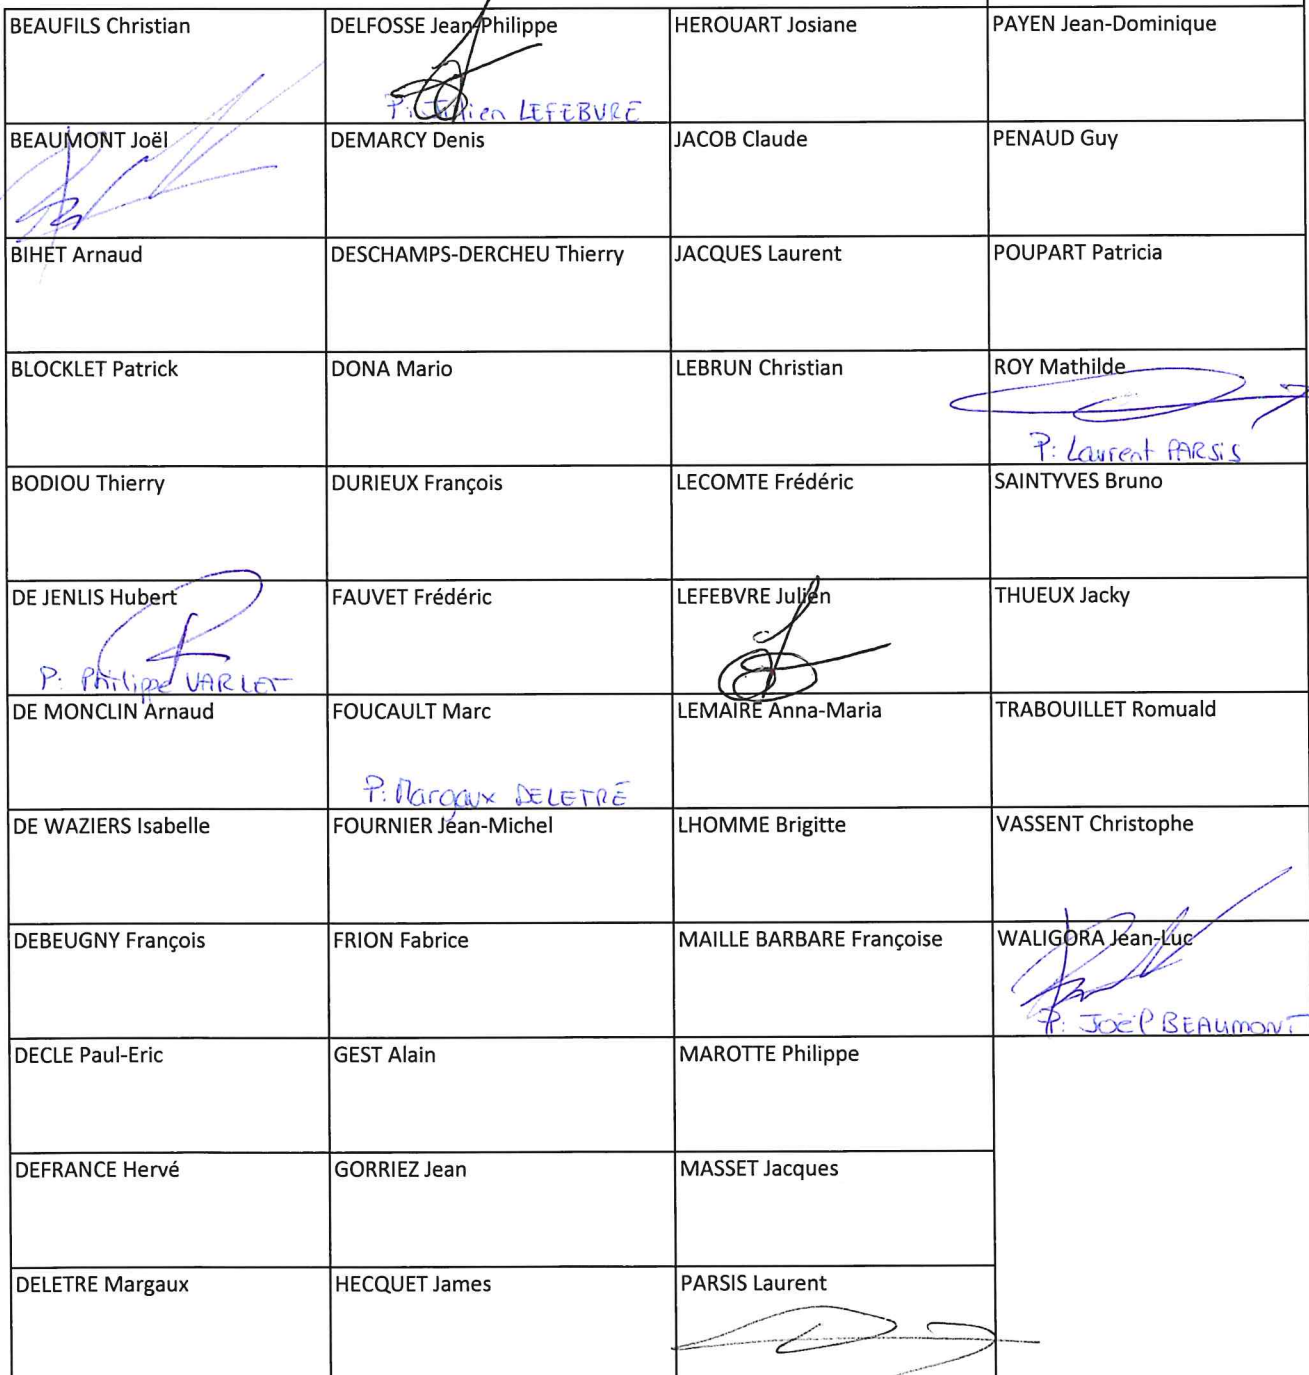 BEAUFILS Christian
DELFOSSE Jean-Philippe
P: Julien LEFEBVRE
HEROUART Josiane
PAYEN Jean-Dominique
BEAUMONT Joël
DEMARCY Denis
JACOB Claude
PENAUD Guy
BIHET Arnaud
DESCHAMPS-DERCHEU Thierry
JACQUES Laurent
POUPART Patricia
BLOCKLET Patrick
DONA Mario
LEBRUN Christian
ROY Mathilde
P: Laurent PARSIS
BODIOU Thierry
DURIEUX François
LECOMTE Frédéric
SAINTYVES Bruno
DE JENLIS Hubert
P: Philippe VARLET
FAUVET Frédéric
LEFEBVRE Julien
THUEUX Jacky
DE MONCLIN Arnaud
FOUCAULT Marc
P: Margaux DELETRE
LEMAIRE Anna-Maria
TRABOUILLET Romuald
DE WAZIERS Isabelle
FOURNIER Jean-Michel
LHOMME Brigitte
VASSENT Christophe
DEBEUGNY François
FRION Fabrice
MAILLE BARBARE Françoise
WALIGORA Jean-Luc
P: Joël BEAUMONT
DECLE Paul-Eric
GEST Alain
MAROTTE Philippe
DEFRANCE Hervé
GORRIEZ Jean
MASSET Jacques
DELETRE Margaux
HECQUET James
PARSIS Laurent